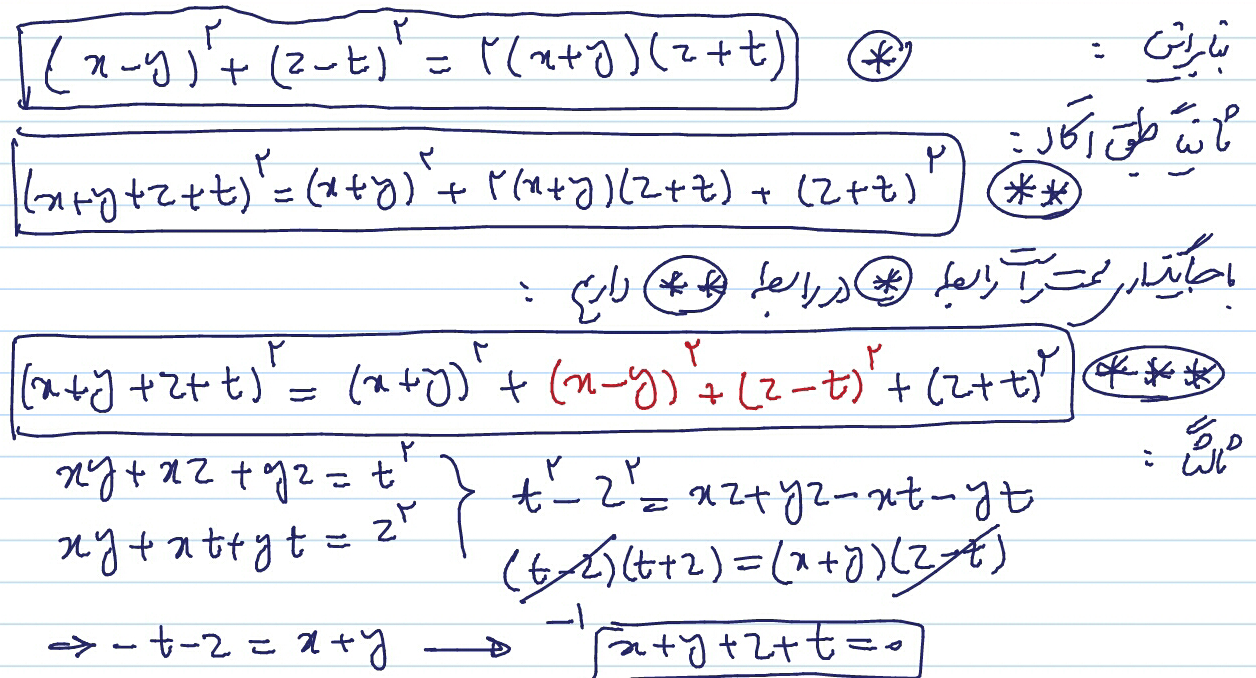 بنابراین :
(x-y)^۲ + (z-t)^۲ = ۲(x+y)(z+t) (*)
ثانیاً طبق اتحاد :
(x+y+z+t)^۲ = (x+y)^۲ + ۲(x+y)(z+t) + (z+t)^۲ (**)
با جایگذاری سمت راست رابطه (*) در رابطه (**) داریم :
(x+y+z+t)^۲ = (x+y)^۲ + (x-y)^۲ + (z-t)^۲ + (z+t)^۲ (***)
ثالثاً :
xy+xz+yz = t^۲ } t^۲-z^۲ = xz+yz-xt-yt
xy+xt+yt = z^۲ (t-z)(t+z) = (x+y)(z-t)
⇒ -t-z = x+y ⟶ -۱ x+y+z+t=۰